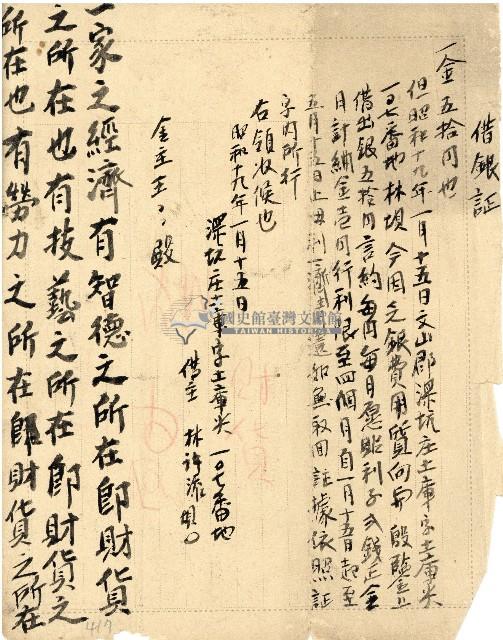 借銀証
一金五拾円也
但昭和十九年一月十五日文山郡深坑庄土庫字土庫尖
一〇七番地林坝今因乏銀費用質向 殿
借出銀五拾円言約每円每月愿貼利子弍錢正金
月計納金壱円行利限至四個月自一月十五日起至
五月十五日止母利 依照証
字內所行
右領收候也
昭和十九年一月十五日
深坑庄土庫字土庫尖一〇七番地
借主 林許添
金主王 殿
一家之經濟有智德之所在即財貨
之所在也有技藝之所在即財貨之
所在也有勞力之所在即財貨之所在
財貨
國史館臺灣文獻館
TAIWAN HISTORICA
417